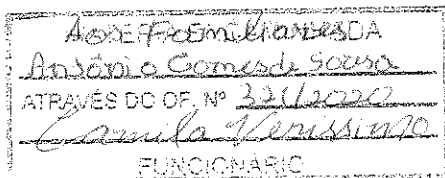 Aos Familiares DA
Antônio Gomes de Sousa
ATRAVÉS DO OF. Nº 321/2020
Camila Verissimo
FUNCIONÁRIO